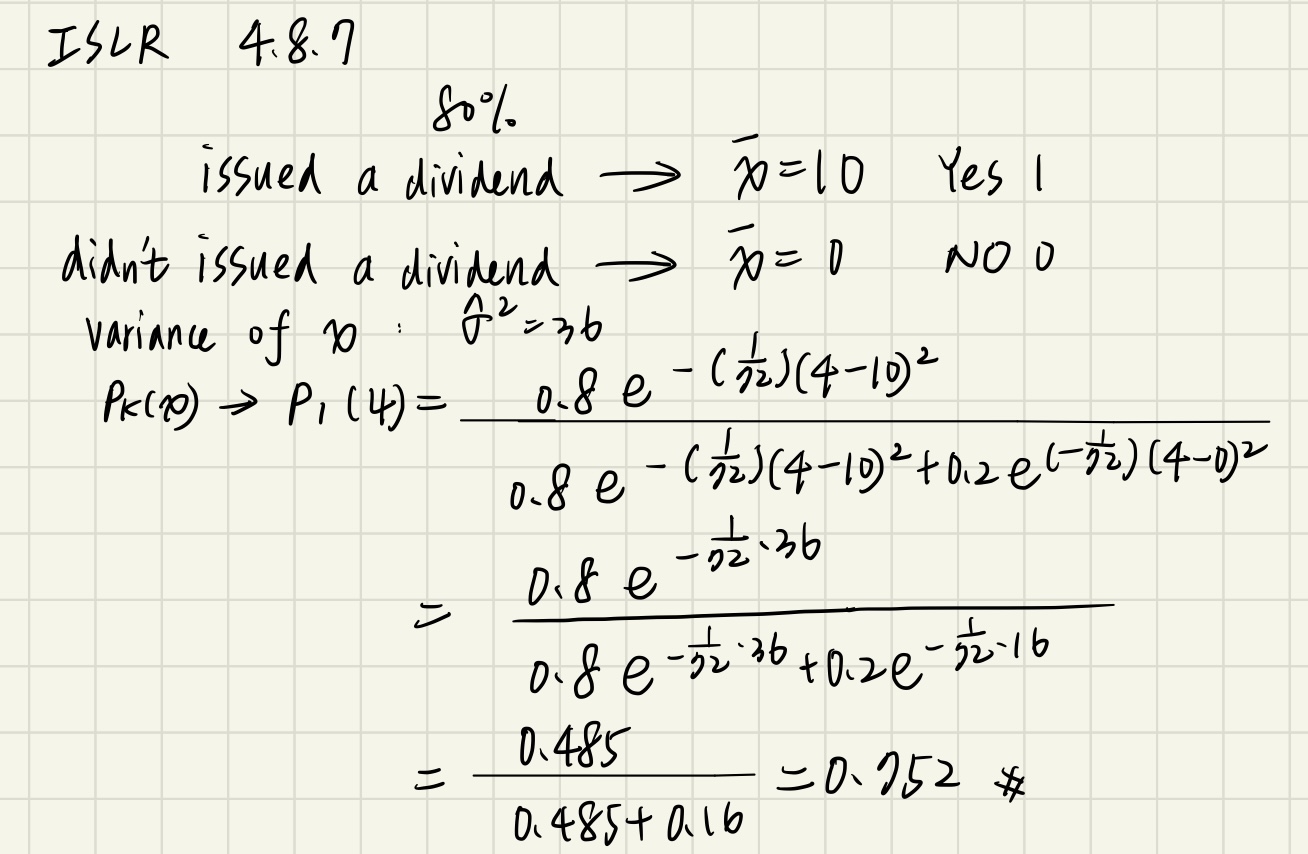 ISLR 4.8.7
80%
issued a dividend → x̄=10 Yes 1
didn't issued a dividend → x̄=0 NO 0
variance of x : σ̂²=36
Pk(x) → P1(4)= 0.8 e^-(1/72)(4-10)² / 0.8 e^-(1/72)(4-10)²+0.2 e^(-1/72)(4-0)²
= 0.8 e^-1/72·36 / 0.8 e^-1/72·36+0.2e^-1/72·16
= 0.485 / 0.485+0.16 =0.752 #